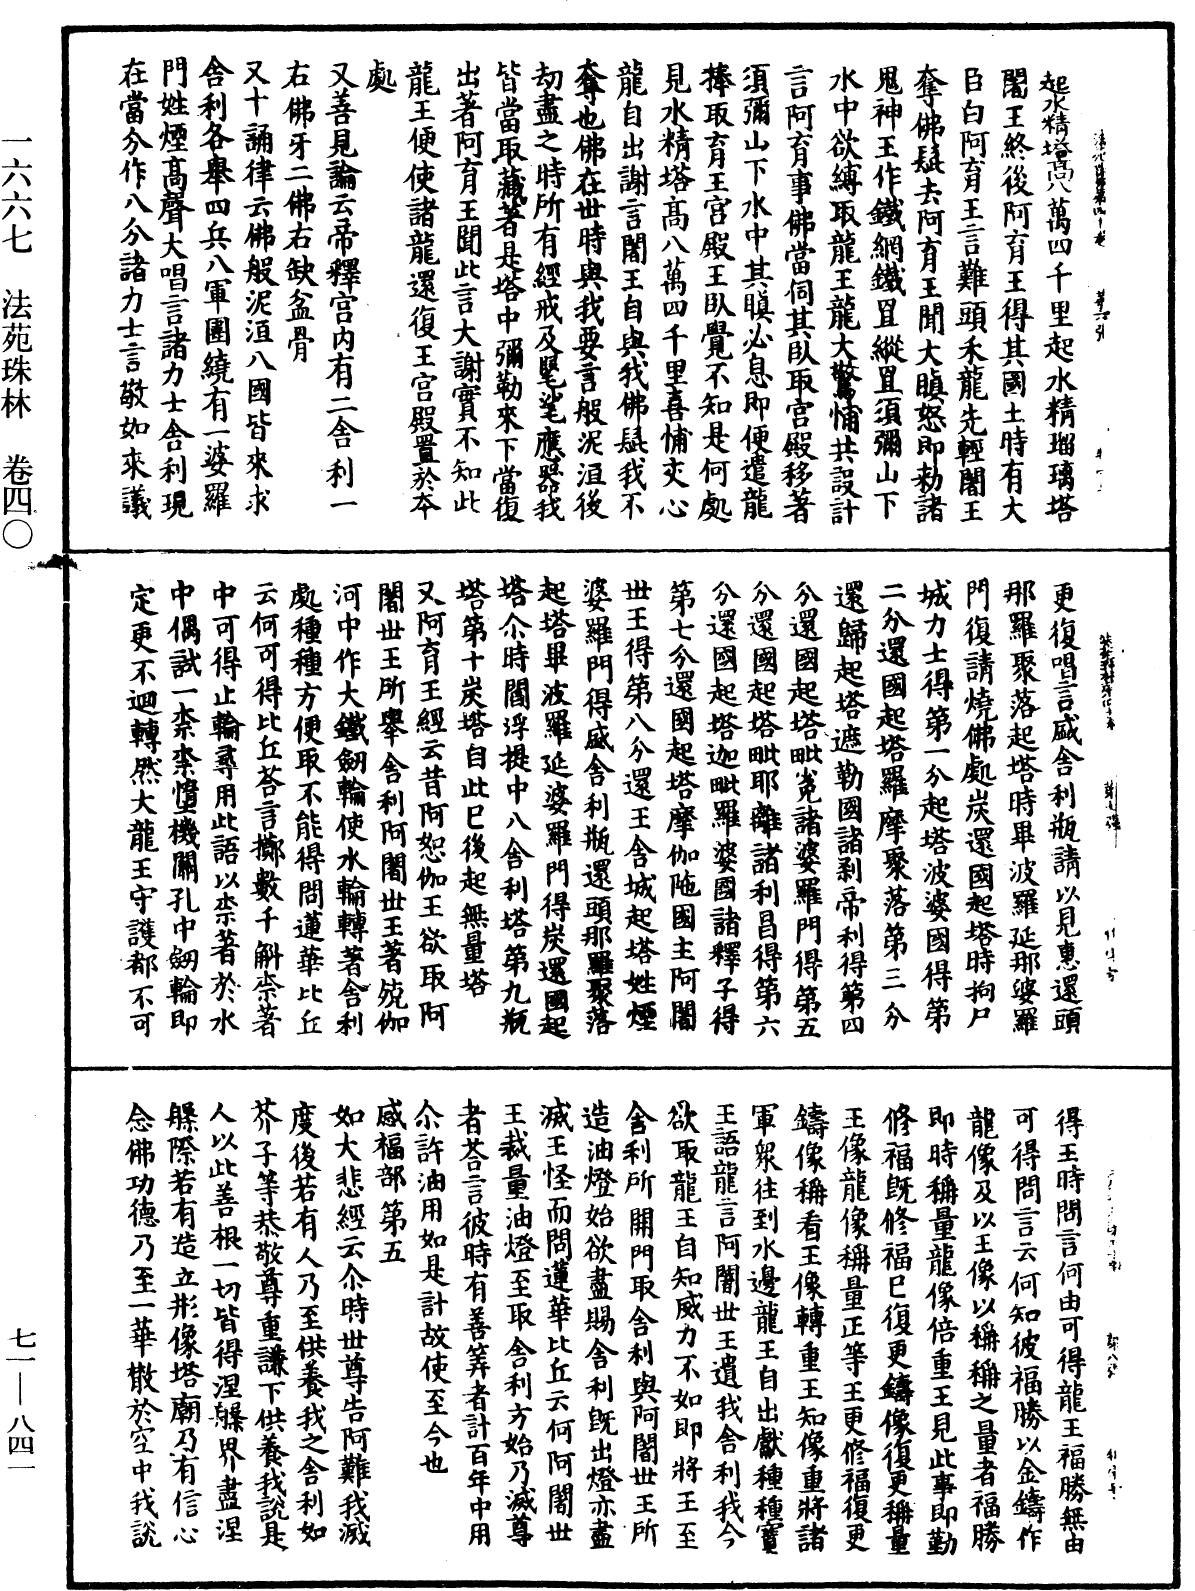 起水精塔高八萬四千里起水精瑠璃塔
闍王終後阿育王得其國土時有大
臣白阿育王言難頭禾龍先輕闍王
奪佛髭去阿育王聞大瞋怒即勑諸
鬼神王作鐵網鐵罝縱罝須彌山下
水中欲縛取龍王龍大驚怖共設計
言阿育事佛當伺其臥取宮殿移著
須彌山下水中其瞋必息即便遣龍
捧取育王宮殿王臥覺不知是何處
見水精塔高八萬四千里喜怖交心
龍自出謝言闍王自與我佛髭我不
奪也佛在世時與我要言般泥洹後
劫盡之時所有經戒及髦毟應器我
皆當取藏著是塔中彌勒來下當復
出著阿育王聞此言大謝實不知此
龍王便使諸龍還復王宮殿置於夲
處
又善見論云帝釋宮內有二舍利一
右佛牙二佛右缺盆骨
又十誦律云佛般泥洹八國皆來求
舍利各舉四兵八軍圍繞有一婆羅
門姓煙高聲大唱言諸力士舍利現
在當分作八分諸力士言敬如來議
更復唱言盛舍利瓶請以見惠還頭
那羅聚落起塔時畢波羅延那婆羅
門復請燒佛處炭還國起塔時拘尸
城力士得第一分起塔波婆國得第
二分還國起塔羅摩聚落第三分
還歸起塔遮勒國諸剎帝利得第四
分還國起塔毗㝹諸婆羅門得第五
分還國起塔毗耶離諸利昌得第六
分還國起塔迦毗羅婆國諸釋子得
第七分還國起塔摩伽陁國主阿闍
世王得第八分還王舍城起塔姓煙
婆羅門得盛舍利瓶還頭那羅聚落
起塔畢波羅延婆羅門得炭還國起
塔尒時閻浮提中八舍利塔第九瓶
塔第十炭塔自此已後起無量塔
又阿育王經云昔阿恕伽王欲取阿
闍世王所舉舍利阿闍世王著兢伽
河中作大鐵劒輪使水輪轉著舍利
處種種方便取不能得問蓮華比丘
云何可得比丘荅言擲數千斛柰著
中可得止輪尋用此語以柰著於水
中偶試一柰柰憧機關孔中劒輪即
定更不迴轉然大龍王守護都不可
得王時問言何由可得龍王福勝無由
可得問言云何知彼福勝以金鑄作
龍像及以王像以稱稱之量者福勝
即時稱量龍像倍重王見此事即勤
修福旣修福已復更鑄像復更稱量
王像龍像稱量正等王更修福復更
鑄像稱看王像轉重王知像重將諸
軍衆往到水邊龍王自出獻種種寶
王語龍言阿闍世王遺我舍利我今
欲取龍王自知威力不如即將王至
舍利所開門取舍利與阿闍世王所
造油燈始欲盡賜舍利旣出燈亦盡
滅王怪而問蓮華比丘云何阿闍世
王裁量油燈至取舍利方始乃滅尊
者荅言彼時有善筭者計百年中用
尒許油用如是計故使至今也
感福部第五
如大悲經云尒時世尊告阿難我滅
度後若有人乃至供養我之舍利如
芥子等恭敬尊重謙下供養我說是
人以此善根一切皆得涅槃界盡涅
槃際若有造立形像塔廟乃有信心
念佛功德乃至一華散於空中我說
一六六七　法苑珠林　卷四〇
七一—八四一